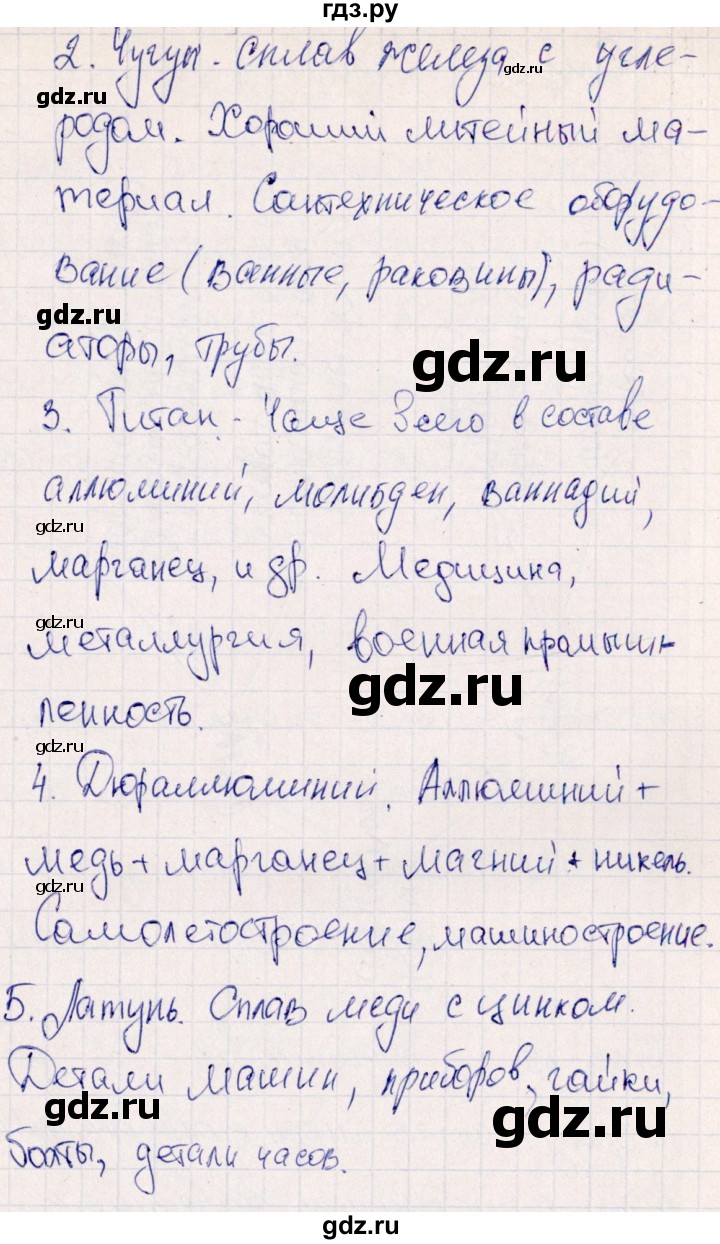 гдз.ру
2. Чугун. Сплав железа с угле-
gdz.ru
gdz.ru
родом. Хороший литейный ма-
териал. Сантехническое оборудо-
вание (ванные, раковины), ради-
gdz.ru
аторы, трубы.
gdz.ru
3. Титан - Чаще всего в составе
аллюминий, молибден, ваннадий,
gdz.ru
марганец, и др. Медицина,
gdz.ru
металлургия, военная промыш-
gdz.ru
ленность.
4. Дюраллюминий. Аллюминий +
медь + марганец + магний + никель.
gdz.ru
Самолетостроение, машиностроение.
gdz.ru
5. Латунь. Сплав меди с цинком.
Детали машин, приборов, гайки,
gdz.ru
gdz.ru
болты, детали часов.
gdz.ru